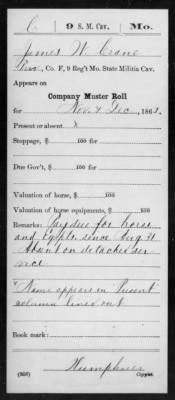 C | 9 S. M. Cav. | Mo.
James W. Crane
Pvt, Co. F, 9 Reg't Mo. State Militia Cav.
Appears on
Company Muster Roll
for Nov & Dec, 1862.
Present or absent x
Stoppage, $ 100 for
Due Gov't, $ 100 for
Valuation of horse, $ 100
Valuation of horse equipments, $ 100
Remarks: Pay due for horse
and Eqpts since Aug 31
Absent on detached ser
vice
Name appears in Present
column lined out
Book mark:
Humphries
(358) Copyist.